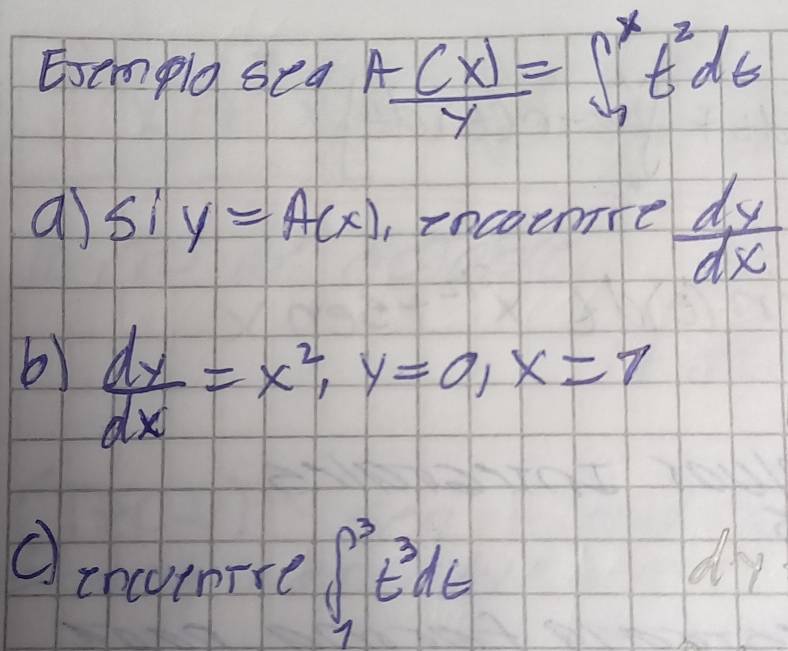 Ejemplo sea A(x) = ∫₁ˣ t² dt
y
a) Si y = A(x), encuentre dy/dx
b) dy/dx = x², y = 0, x = 1
c) encuentre ∫₁³ t³ dt
dy